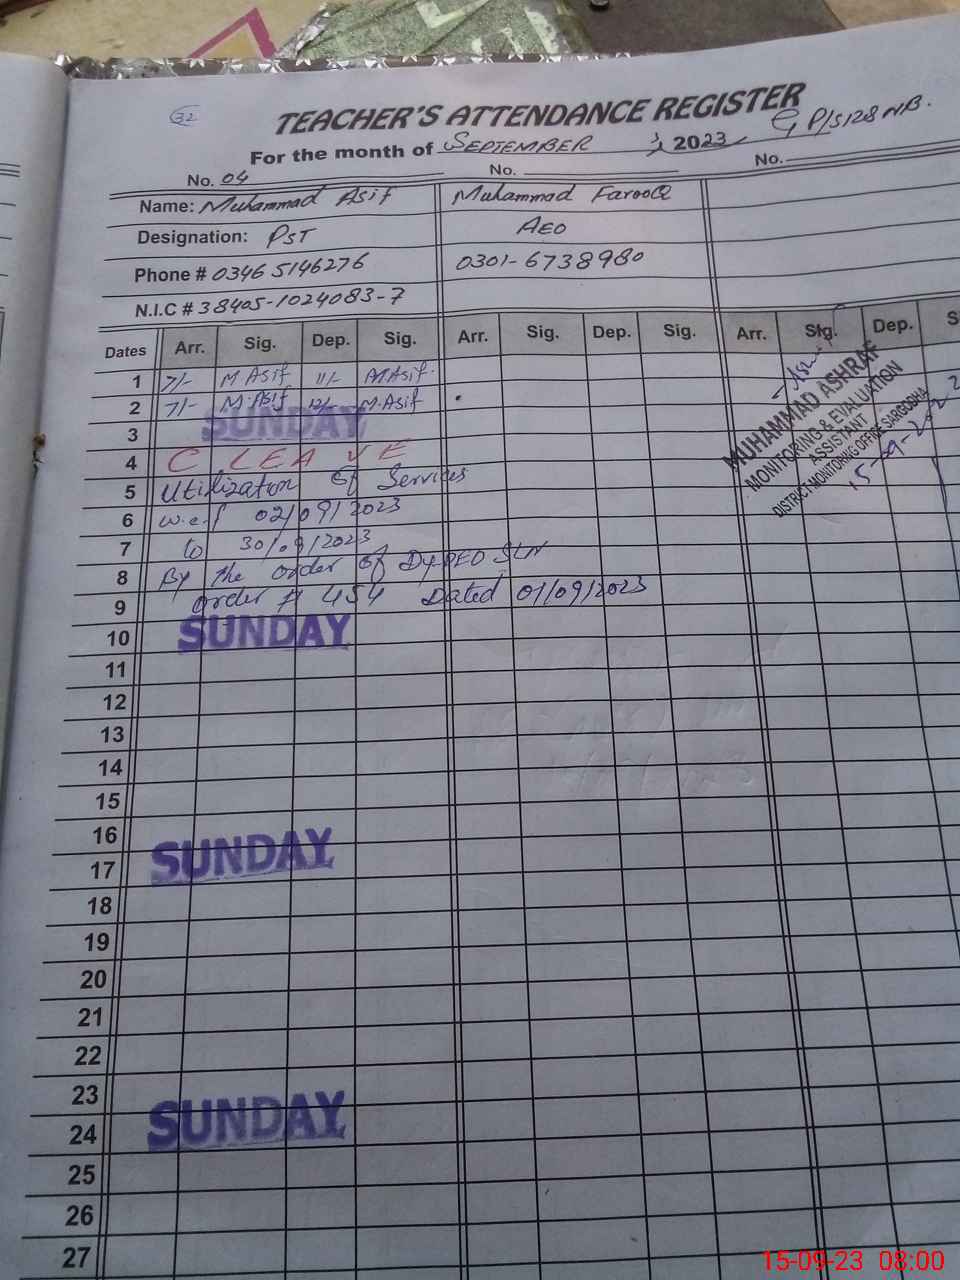 32
TEACHER'S ATTENDANCE REGISTER
For the month of SEPTEMBER 2023 G P/S 128 NB.
No. 04 No. No.
Name: Muhammad Asif Muhammad FarooQ
Designation: PST AEO
Phone # 0346 5146276 0301-6738980
N.I.C # 38405-1024083-7
Dates Arr. Sig. Dep. Sig. Arr. Sig. Dep. Sig. Arr. Sig. Dep. S
1 7/- M Asif 11/- M Asif.
2 7/- M. Asif 12/- M. Asif
SUNDAY
3
4 C LEAVE
5 Utilization of Services
6 w.e.f 02/09/2023
7 to 30/09/2023
8 By the order of Dy.DEO
9 order # 454 Dated 01/09/2023
SUNDAY
10
11
12
13
14
15
16
SUNDAY
17
18
19
20
21
22
23
SUNDAY
24
25
26
27
MUHAMMAD ASHRAF
MONITORING & EVALUATION
ASSISTANT
DISTRICT MONITORING OFFICE SARGODHA
15-09-23 08:00